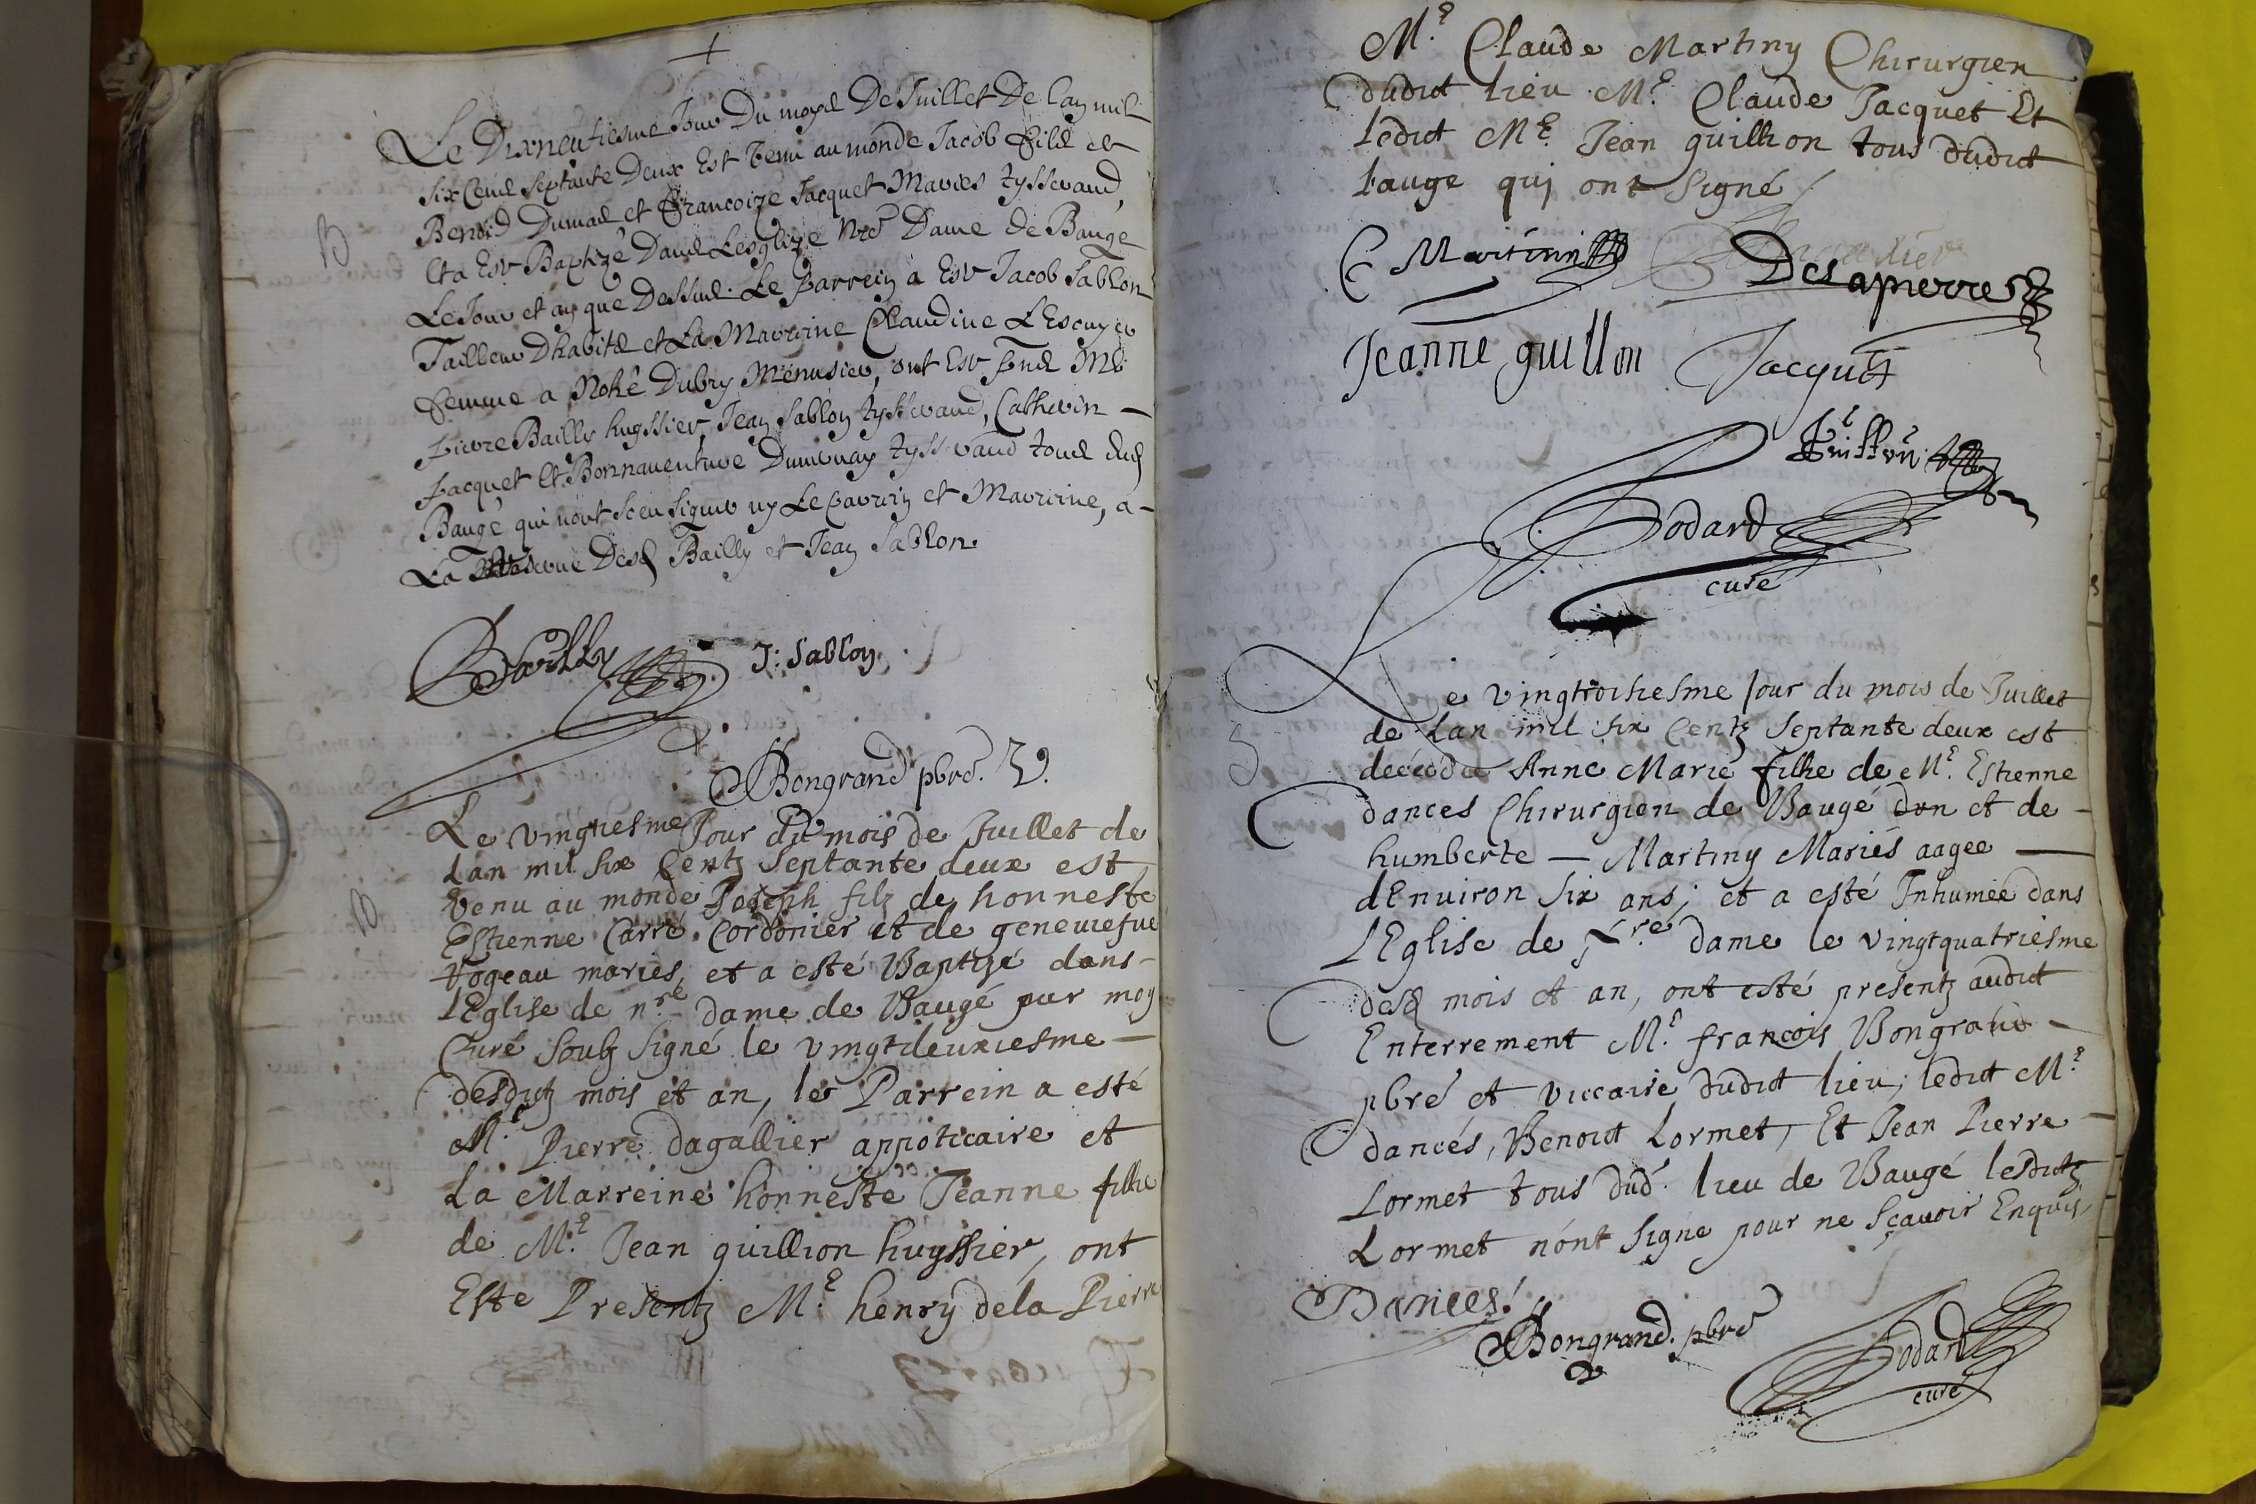 Le Dixneufiesme Jour Du moys De Juillet De lan mil
six Cens Septante Deux Est Venu au monde Jacob Fils de
Benoid Dumas et Francoize Jacquet Mariés tysserand,
B
Et a Esté Baptizé Dans Lesglize Nre Dame de Baugé
Le Jour et an que Dessus. Le Parrein a Esté Jacob Sablon
Tailleur Dhabits et La Marrine Claudine LEscuyer
Femme a Dubry Menusier, ont Esté Pns Me
Pierre Bailly huyssier, Jean Sablon tysserand, Catherin
Jacquet Et Bonnaventure tysserand tous dud
Baugé qui nont sceu signer ny Le Parrin et Marrine, a
La Reserve Desd Bailly et Jean Sablon
Bailly J: Sablon
Bongrand pbre.
Le vingtiesme Jour du mois de Juillet de
Lan mil six Centz Septante deux est
B
Venu au monde Joseph filz de honneste
Estienne Carré Cordonier et de geneuiefue
Vogeau mariés, et a esté Baptizé dans
LEglise de nre dame de Baugé par moy
Curé soubz signé le vingtdeuxiesme
desditz mois et an, le Parrein a esté
Me Pierre dagallier appoticaire et
La Marreine honneste Jeanne fillie
de Me Jean guillion huyssier, ont
Este Presentz Me henry dela Pierre
Me Claude Martiny Chirurgien
dudit lieu Me Claude Jacquet Et
ledit Me Jean guillion tous dudit
bauge quj ont signé
C Martinii
Delapierre
Jeanne guillon Jacquet
Guillon
Bodard
curé
Le vingtroisiesme Jour du mois de Juillet
de Lan mil six Centz Septante deux est
S
décédée Anne Marie fillie de Me Estienne
dances Chirurgien de Baugé don et de
humberte — Martiny Mariés aagee
dEnviron six ans; et a esté Inhumée dans
LEglise de Nre dame le vingtquatriesme
desd mois et an, ont esté presentz audit
Enterrement Me françois Bongrand
pbre et viccaire dudit lieu; ledit Me
dancés, Benoit Lormet, Et Jean Pierre
Lormet tous dud. lieu de Baugé lesditz
Lormet n'ont signe pour ne sçavoir Enquis
Dances.
Bongrand. pbre
Bodard
curé